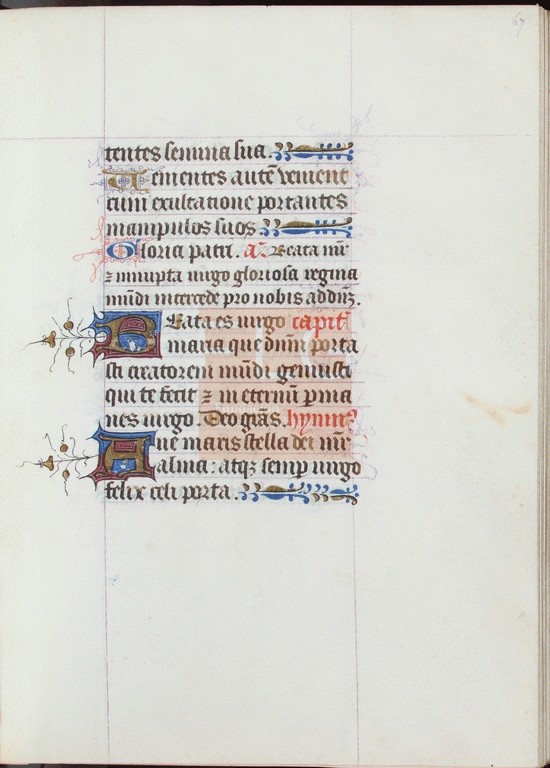 67
tentes semina sua.
Uenientes autē venient
cum exultatione portantes
manipulos suos
Gloria patri. a᷒. Beata mr̄
⁊ innupta uirgo gloriosa regina
mūdi intercede pro nobis ad dn̄ꝫ.
BEata es uirgo capitł
maria que dn̄m porta
sti creatorem mūdi genuisti
qui te fecit ⁊ in eternū ꝑma
nes uirgo. Deo grās. hymnꝰ
Aue maris stella dei mr̄
alma: atqꝫ semꝑ uirgo
felix celi porta.